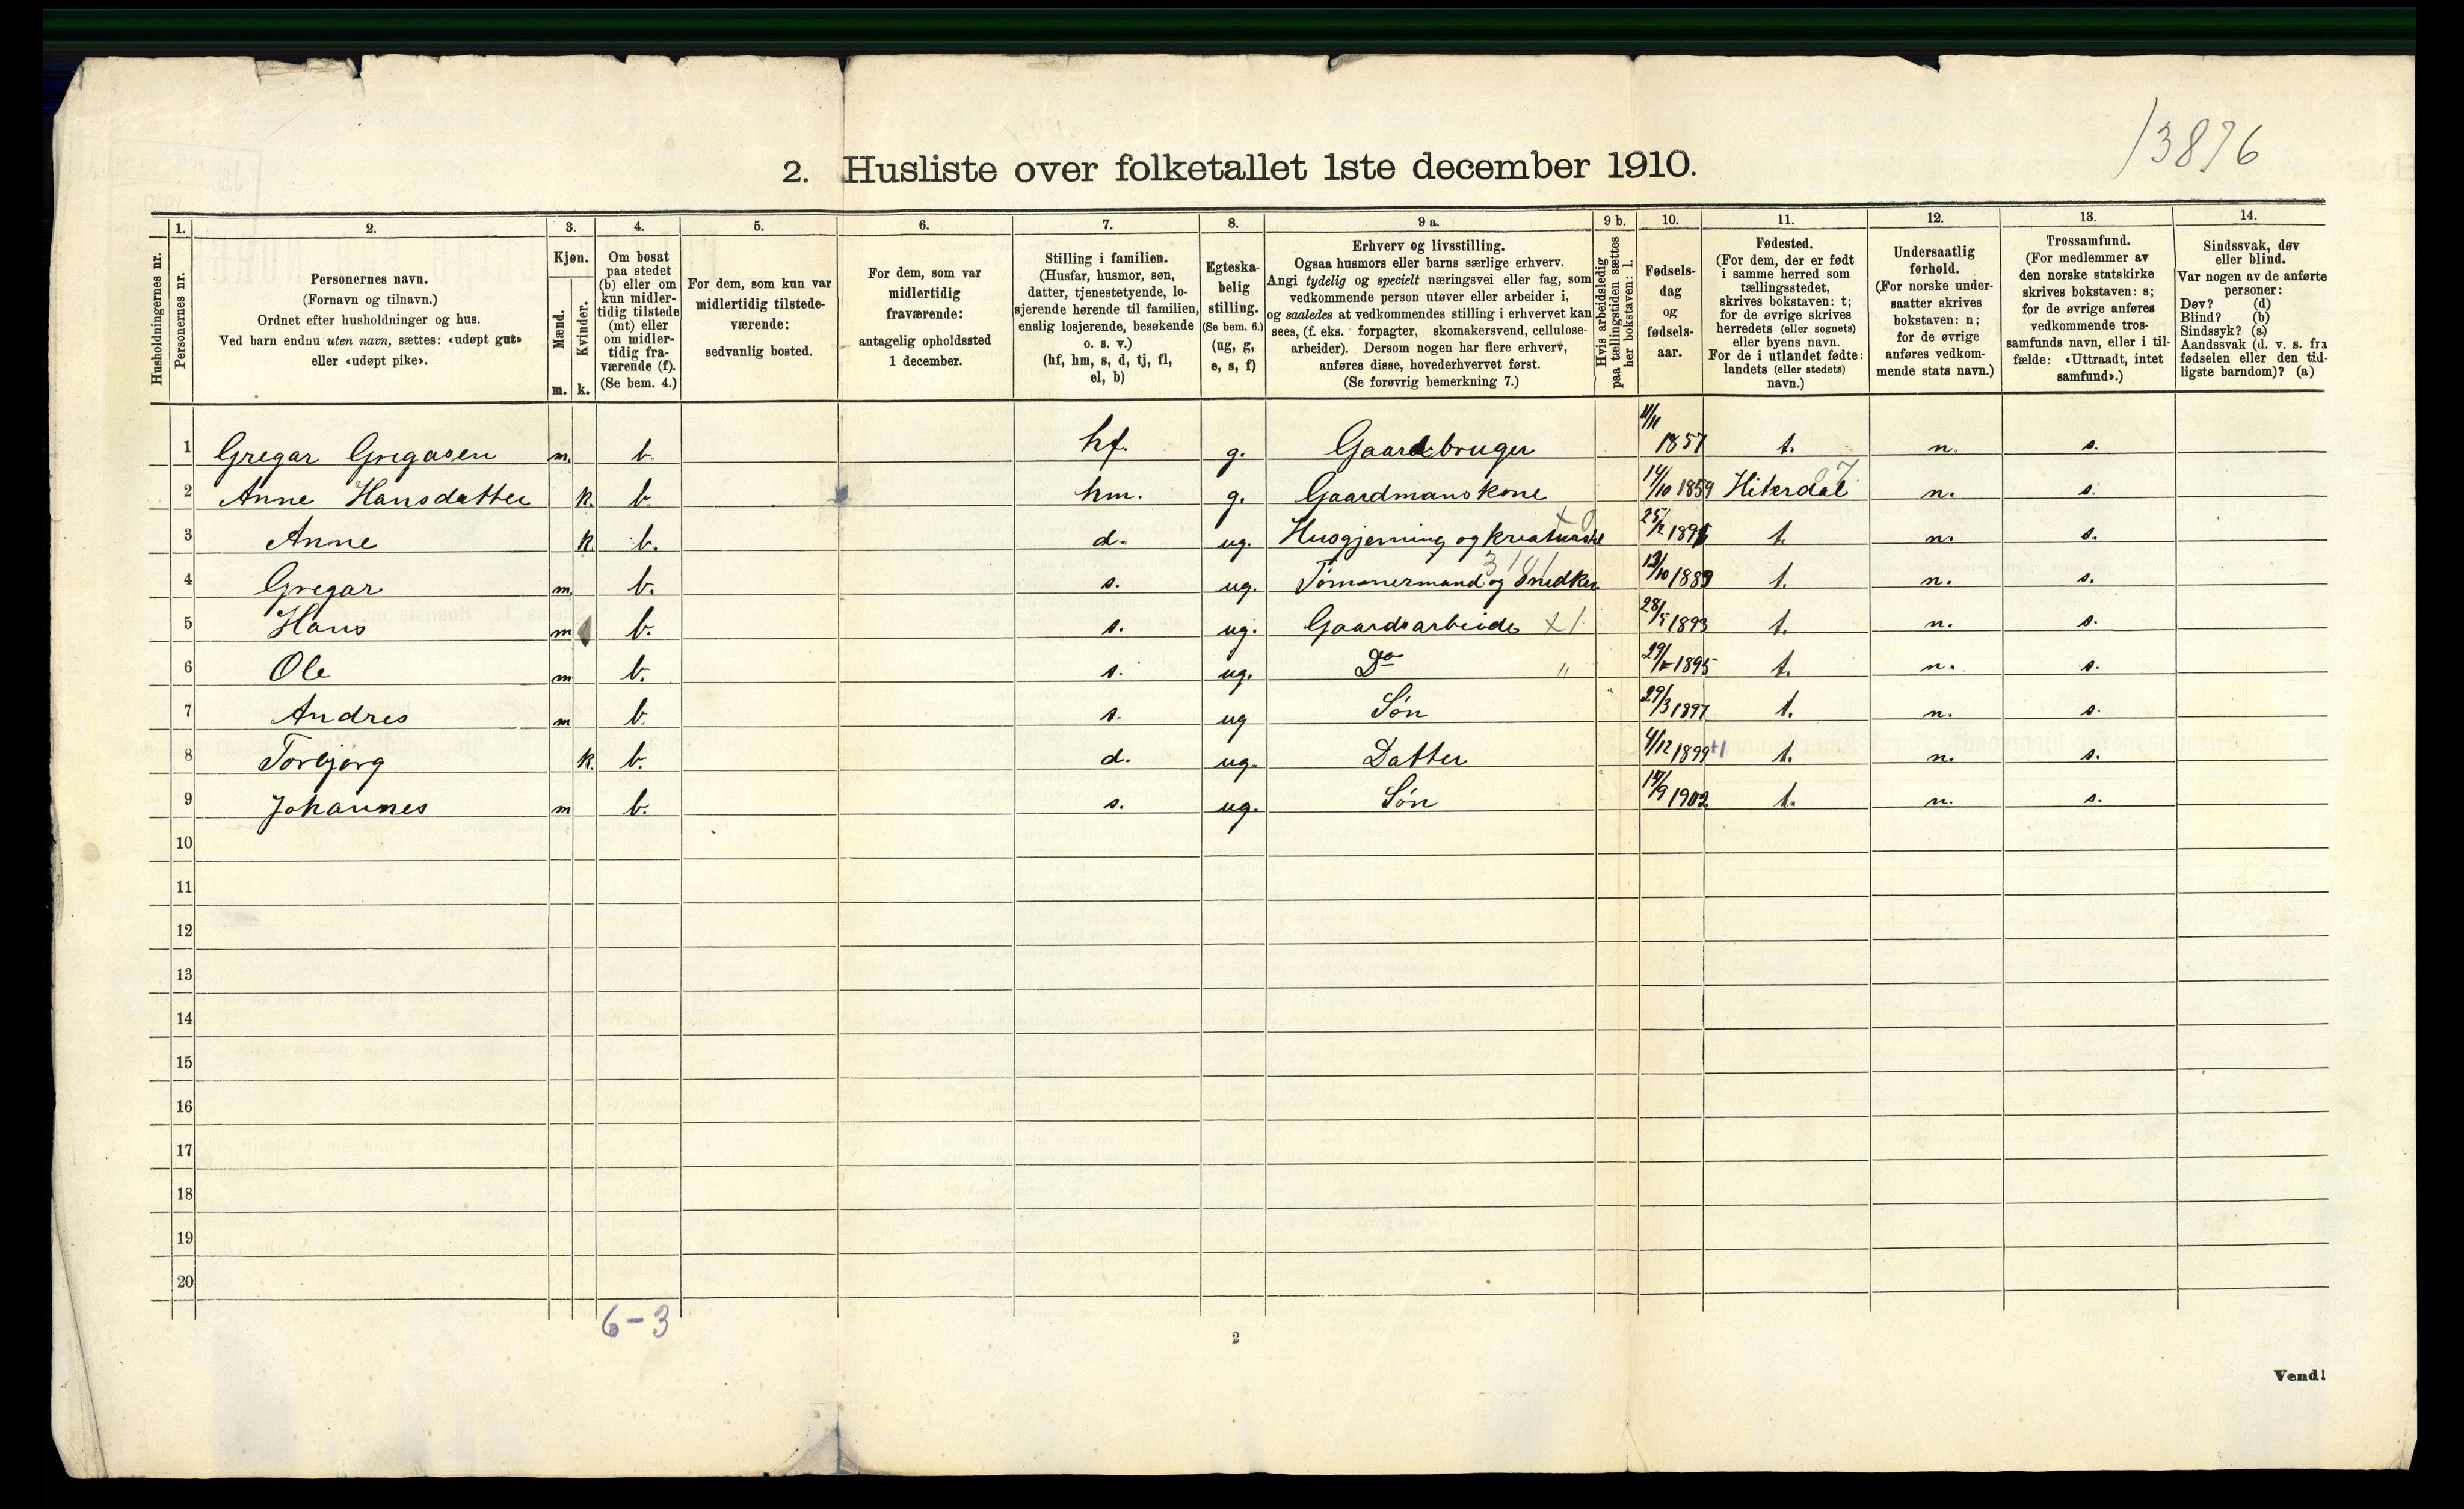 13876
2. Husliste over folketallet 1ste december 1910.
Husholdningernes nr.
1.
Personernes nr.
2.
Personernes navn.
(Fornavn og tilnavn.)
Ordnet efter husholdninger og hus.
Ved barn endnu uten navn, sættes: «udøpt gut»
eller «udøpt pike».
3.
Kjøn.
Mænd.
m.
Kvinder.
k.
4.
Om bosat
paa stedet
(b) eller om
kun midler-
tidig tilstede
(mt) eller
om midler-
tidig fra-
værende (f).
(Se bem. 4.)
5.
For dem, som kun var
midlertidig tilstede-
værende:
sedvanlig bosted.
6.
For dem, som var
midlertidig
fraværende:
antagelig opholdssted
1 december.
7.
Stilling i familien.
(Husfar, husmor, søn,
datter, tjenestetyende, lo-
sjerende hørende til familien,
enslig losjerende, besøkende
o. s. v.)
(hf, hm, s, d, tj, fl,
el, b)
8.
Egteska-
belig
stilling.
(Se bem. 6.)
(ug, g,
e, s, f)
9 a.
Erhverv og livsstilling.
Ogsaa husmors eller barns særlige erhverv.
Angi tydelig og specielt næringsvei eller fag, som
vedkommende person utøver eller arbeider i,
og saaledes at vedkommendes stilling i erhvervet kan
sees, (f. eks. forpagter, skomakersvend, cellulose-
arbeider). Dersom nogen har flere erhverv,
anføres disse, hovederhvervet først.
(Se forøvrig bemerkning 7.)
9 b.
Hvis arbeidsledig
paa tællingstiden sættes
her bokstaven: l.
10.
Fødsels-
dag
og
fødsels-
aar.
11.
Fødested.
(For dem, der er født
i samme herred som
tællingsstedet,
skrives bokstaven: t;
for de øvrige skrives
herredets (eller sognets)
eller byens navn.
For de i utlandet fødte:
landets (eller stedets)
navn.)
12.
Undersaatlig
forhold.
(For norske under-
saatter skrives
bokstaven: n;
for de øvrige
anføres vedkom-
mende stats navn.)
13.
Trossamfund.
(For medlemmer av
den norske statskirke
skrives bokstaven: s;
for de øvrige anføres
vedkommende tros-
samfunds navn, eller i til-
fælde: «Uttraadt, intet
samfund».)
14.
Sindssvak, døv
eller blind.
Var nogen av de anførte
personer:
Døv? (d)
Blind? (b)
Sindssyk? (s)
Aandssvak (d. v. s. fra
fødselen eller den tid-
ligste barndom)? (a)
1 Gregar Gregasen m. b. hf. g. Gaardbruger 11/11 1857 t. n. s.
2 Anne Hansdatter k. b. hm. g. Gaardmanskone 14/10 1859 Hiterdal n. s.
3 Anne k. b. d. ug. Husgjerning og kreaturstel t. n. s.
4 Gregar m. b. s. ug. Tømmermand og Snedker t. n. s.
5 Hans m b. s. ug. Gaardsarbeide x1 28/5 1893 t. n. s.
6 Ole m b. s. ug. Do " 1895 t. n. s.
7 Andres m b. s. ug Søn 29/3 1897 t. n. s.
8 Torbjørg k. b. d. ug. Datter 4/12 1899 +1 t. n. s.
9 Johannes m b. s. ug. Søn 14/9 1902 t. n. s.
10
11
12
13
14
15
16
17
18
19
20
6-3
2
Vend!